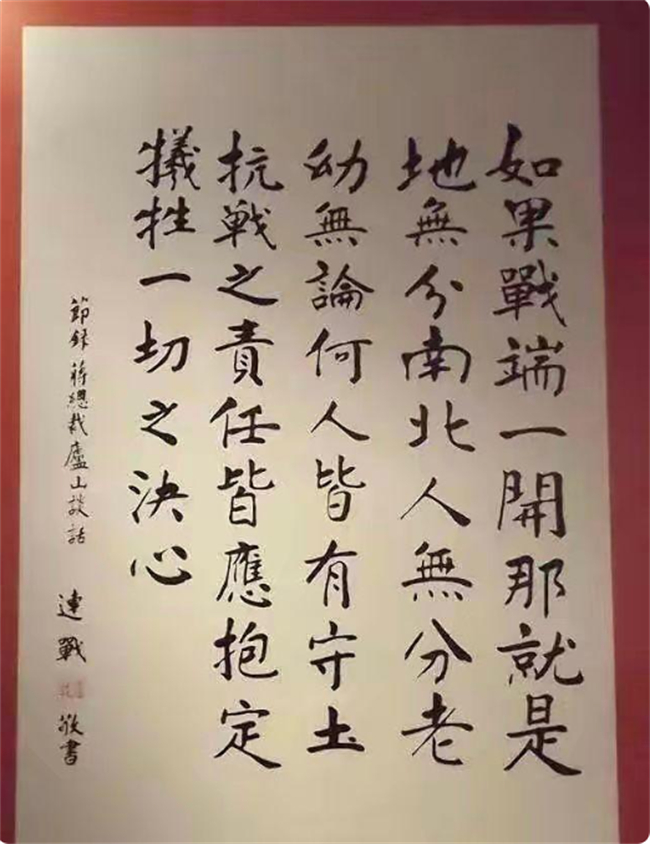 如果戰端一開那就是
地無分南北人無分老
幼無論何人皆有守土
抗戰之責任皆應抱定
犧牲一切之決心
節錄蔣總裁廬山談話
連戰 敬書